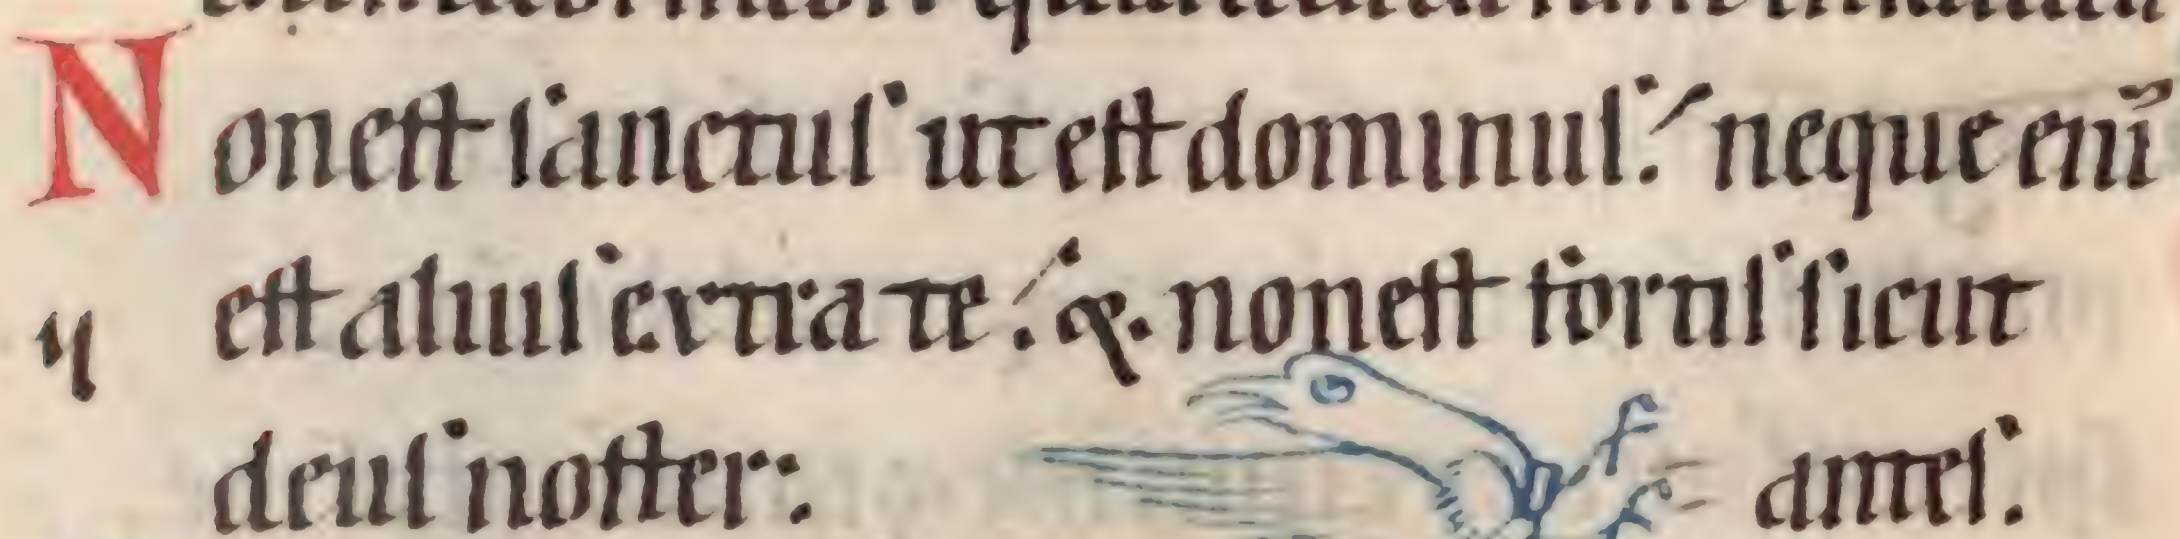 Non est sanctus ut est dominus: neque enī
est alius extra te: & non est fortis sicut
deus noster: antes.